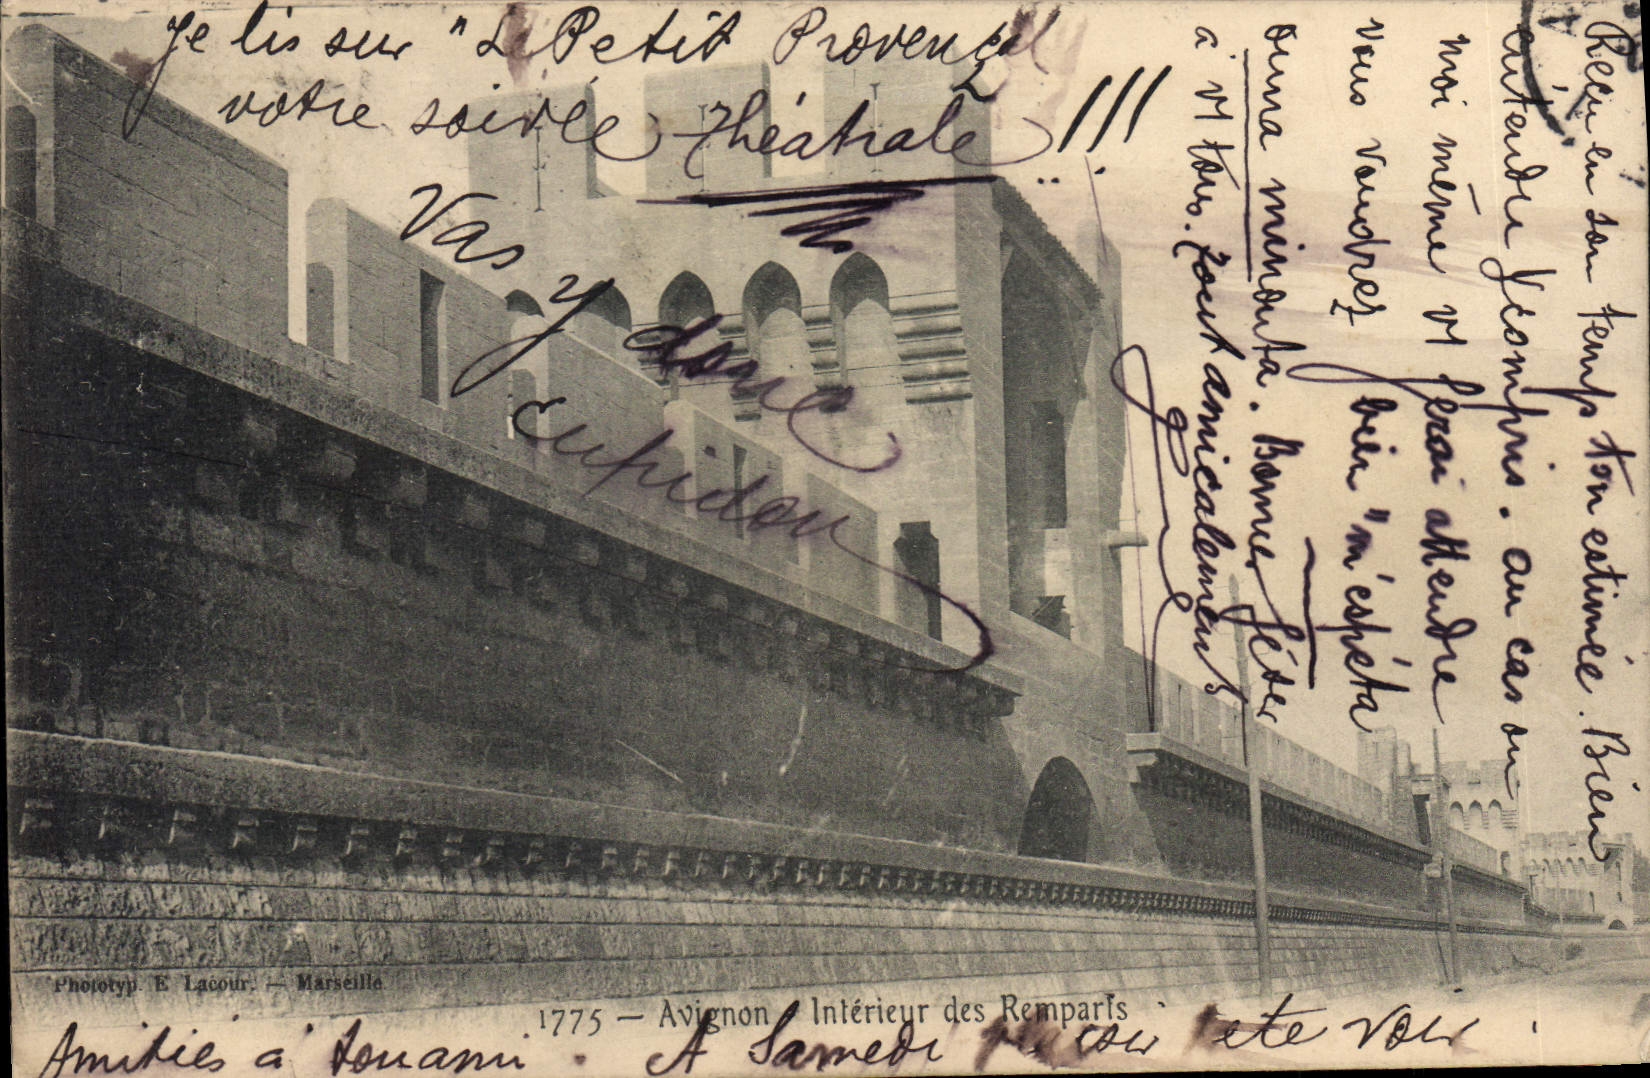 Je lis sur "Le Petit Provençal
votre soirée théâtrale !!!
Vas y donc
Cupidon
Recu en son temps ton estimée. Bien
entendu j'compris. au cas ou
moi même vs ferai attendre
vous voudrez bien "m'espéta
ouna minouta. Bonnes fêtes
à vs tous. Tout amicalement
Phototyp. E. Lacour. — Marseille
1775 — Avignon Intérieur des Remparts
Amitiés à ton ami. A Samedi pour te voir.